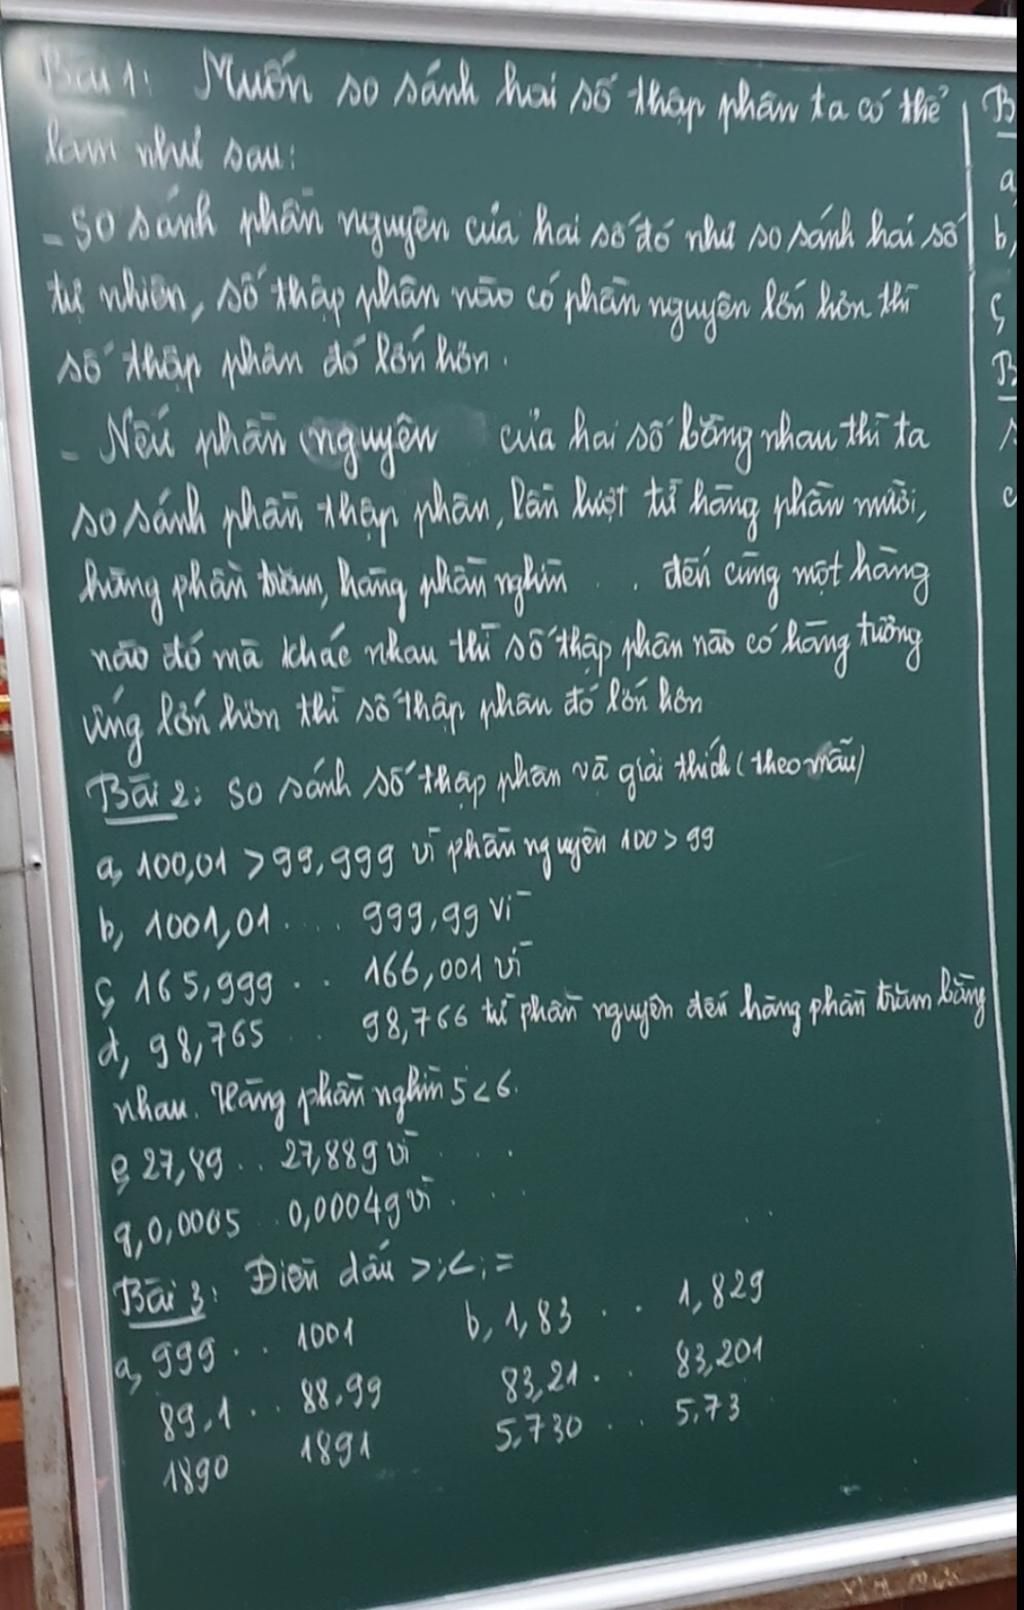 Bài 1: Muốn so sánh hai số thập phân ta có thể
làm như sau:
- So sánh phần nguyên của hai số đó như so sánh hai số
tự nhiên, số thập phân nào có phần nguyên lớn hơn thì
số thập phân đó lớn hơn.
- Nếu phần nguyên của hai số bằng nhau thì ta
so sánh phần thập phân, lần lượt từ hàng phần mười,
hàng phần trăm, hàng phần nghìn .. đến cùng một hàng
nào đó mà khác nhau thì số thập phân nào có hàng tương
ứng lớn hơn thì số thập phân đó lớn hơn
Bài 2: So sánh số thập phân và giải thích (theo mẫu)
a, 100,01 > 99,999 vì phần nguyên 100 > 99
b, 1001,01 .... 999,99 vì
c, 165,999 .. 166,001 vì
d, 98,765 .. 98,766 từ phần nguyên đến hàng phần trăm bằng
nhau. Hàng phần nghìn 5 < 6.
e, 27,89 .. 27,889 vì ...
g, 0,0005 .. 0,00049 vì ...
Bài 3: Điền dấu >; <; =
a, 999 .. 1001 b, 1,83 .. 1,829
89,1 .. 88,99 83,21 .. 83,201
1890 1891 5,730 .. 5,73
B
a
b,
c,
B